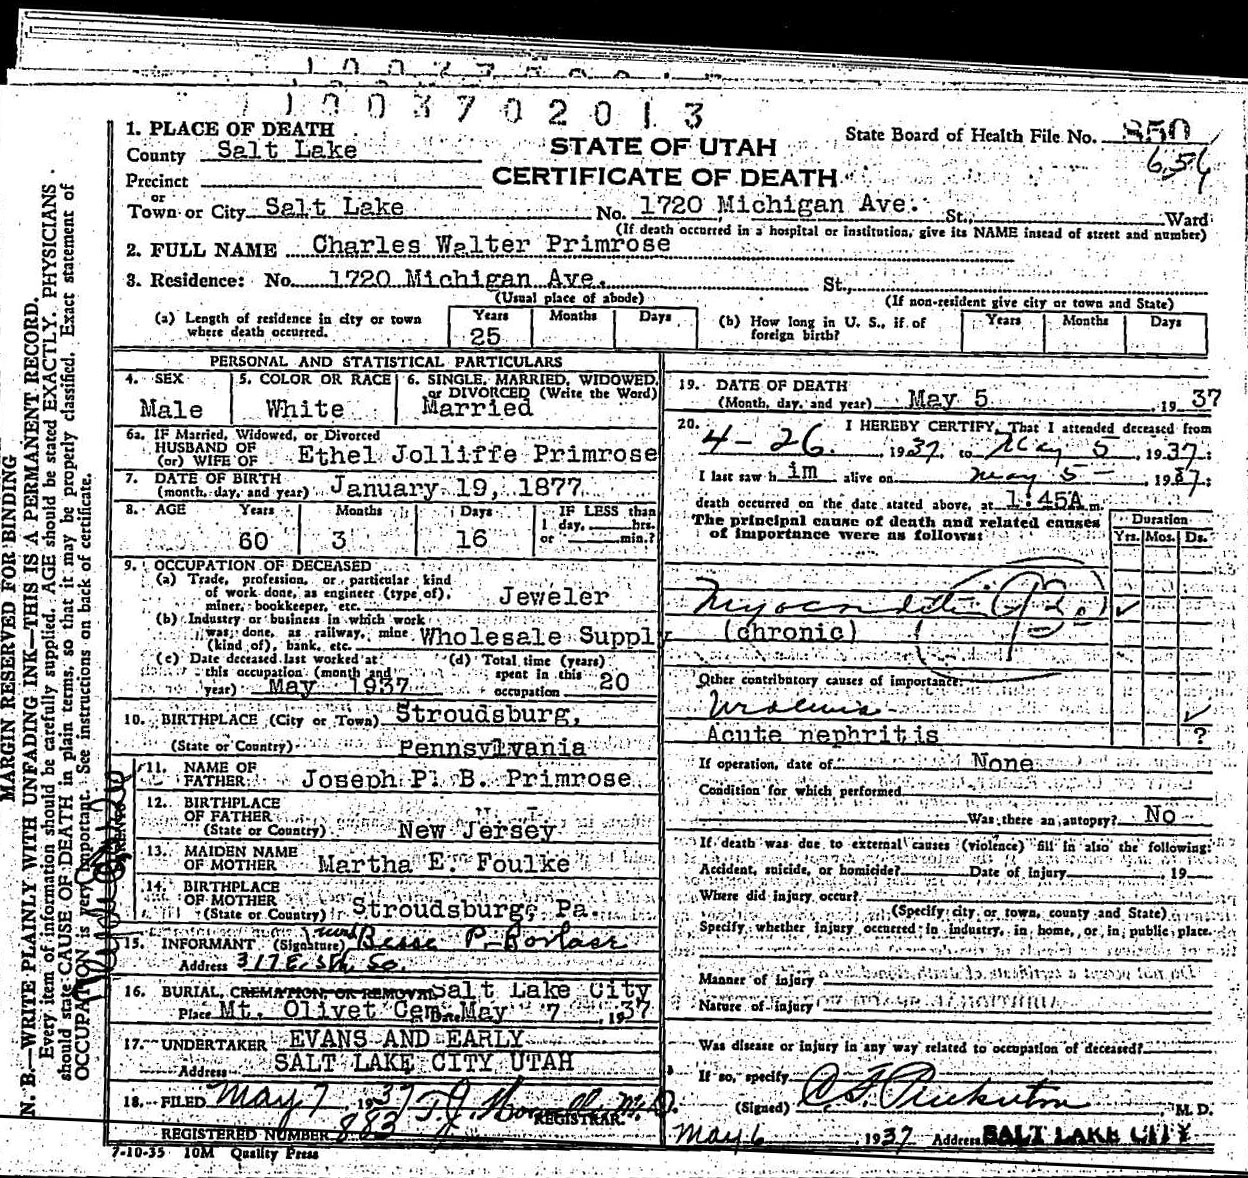 1003702013
1. PLACE OF DEATH
County Salt Lake
STATE OF UTAH
State Board of Health File No. 850
654
Precinct
CERTIFICATE OF DEATH
or
Town or City Salt Lake No. 1720 Michigan Ave. St., Ward
(If death occurred in a hospital or institution, give its NAME insead of street and number)
2. FULL NAME Charles Walter Primrose
3. Residence: No. 1720 Michigan Ave. St.,
(Usual place of abode) (If non-resident give city or town and State)
(a) Length of residence in city or town where death occurred. Years 25 Months Days
(b) How long in U. S., if of foreign birth? Years Months Days
PERSONAL AND STATISTICAL PARTICULARS
4. SEX Male
5. COLOR OR RACE White
6. SINGLE, MARRIED, WIDOWED, or DIVORCED (Write the Word) Married
6a. IF Married, Widowed, or Divorced
HUSBAND OF
(or) WIFE OF Ethel Jolliffe Primrose
7. DATE OF BIRTH
(month, day, and year) January 19, 1877
8. AGE Years 60 Months 3 Days 16 IF LESS than 1 day, hrs. or min.?
9. OCCUPATION OF DECEASED
(a) Trade, profession, or particular kind
of work done, as engineer (type of),
miner, bookkeeper, etc. Jeweler
(b) Industry or business in which work
was done, as railway, mine
(kind of), bank, etc. Wholesale Supply
(c) Date deceased last worked at
this occupation (month and
year) May 1937
(d) Total time (years)
spent in this
occupation 20
10. BIRTHPLACE (City or Town) Stroudsburg,
(State or Country) Pennsylvania
PARENTS
11. NAME OF
FATHER Joseph P. B. Primrose
12. BIRTHPLACE
OF FATHER
(State or Country) New Jersey
13. MAIDEN NAME
OF MOTHER Martha E. Foulke
14. BIRTHPLACE
OF MOTHER
(State or Country) Stroudsburg, Pa.
15. INFORMANT (Signature) Mrs Besse P.
Address 317 E. 5th So.
16. BURIAL, CREMATION, OR REMOVAL Salt Lake City
Place Mt. Olivet Cem. Date May 7, 1937
17. UNDERTAKER EVANS AND EARLY
Address SALT LAKE CITY UTAH
18. FILED May 7 1937 T. J. Howells M.D.
REGISTRAR.
REGISTERED NUMBER 883
7-10-35 10M Quality Press
19. DATE OF DEATH
(Month, day, and year) May 5 1937
20. I HEREBY CERTIFY, That I attended deceased from
4-26, 1937, to May 5, 1937;
I last saw him alive on May 5, 1937;
death occurred on the date stated above, at 1:45A m.
The principal cause of death and related causes
of importance were as follows:
Duration
Yrs. Mos. Ds.
Myocarditis
(chronic)
Other contributory causes of importance:
Uraemia
Acute nephritis ?
If operation, date of None
Condition for which performed
Was there an autopsy? No
If death was due to external causes (violence) fill in also the following:
Accident, suicide, or homicide? Date of Injury 19
Where did injury occur?
(Specify city or town, county and State)
Specify whether injury occurred in industry, in home, or in public place.
Manner of injury
Nature of injury
Was disease or injury in any way related to occupation of deceased?
If so, specify
(Signed) C. F. Pinkerton M. D.
May 6, 1937 Address SALT LAKE CITY
MARGIN RESERVED FOR BINDING
N. B.—WRITE PLAINLY WITH UNFADING INK—THIS IS A PERMANENT RECORD.
Every item of information should be carefully supplied. AGE should be stated EXACTLY. PHYSICIANS
should state CAUSE OF DEATH in plain terms, so that it may be properly classified. Exact statement of
OCCUPATION is very important. See instructions on back of certificate.